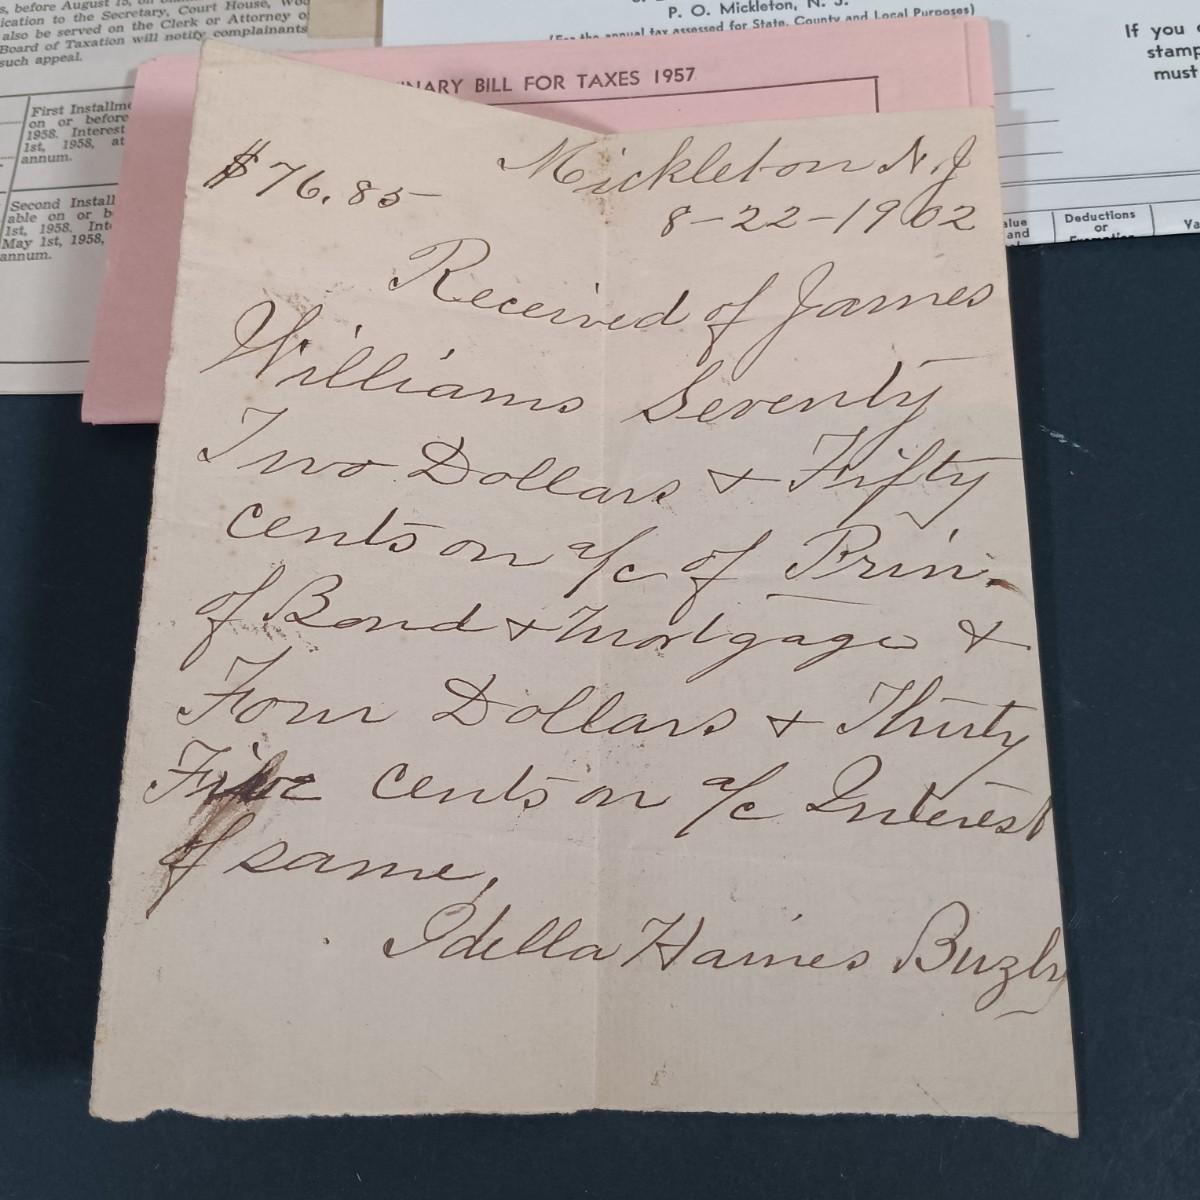 s, before August 15, on
ication to the Secretary, Court House, Woo
also be served on the Clerk or Attorney o
Board of Taxation will notify complainants
such appeal.
First Installme
on or before
1958. Interest
1st, 1958, at
annum.
Second Instal
able on or b
1st, 1958. Int
May 1st, 1958,
annum.
P. O. Mickleton, N. J.
(For the annual tax assessed for State, County and Local Purposes)
If you
stamp
must
NARY BILL FOR TAXES 1957
alue
and
Deductions
or
Va
$76.85
Mickleton N.J
8-22-1902
Received of James
Williams Seventy
Two Dollars & Fifty
cents on a/c of Prin.
of Bond & Mortgage &
Four Dollars & Thirty
Five cents on a/c Interest
of same,
Idella Haines Buzby